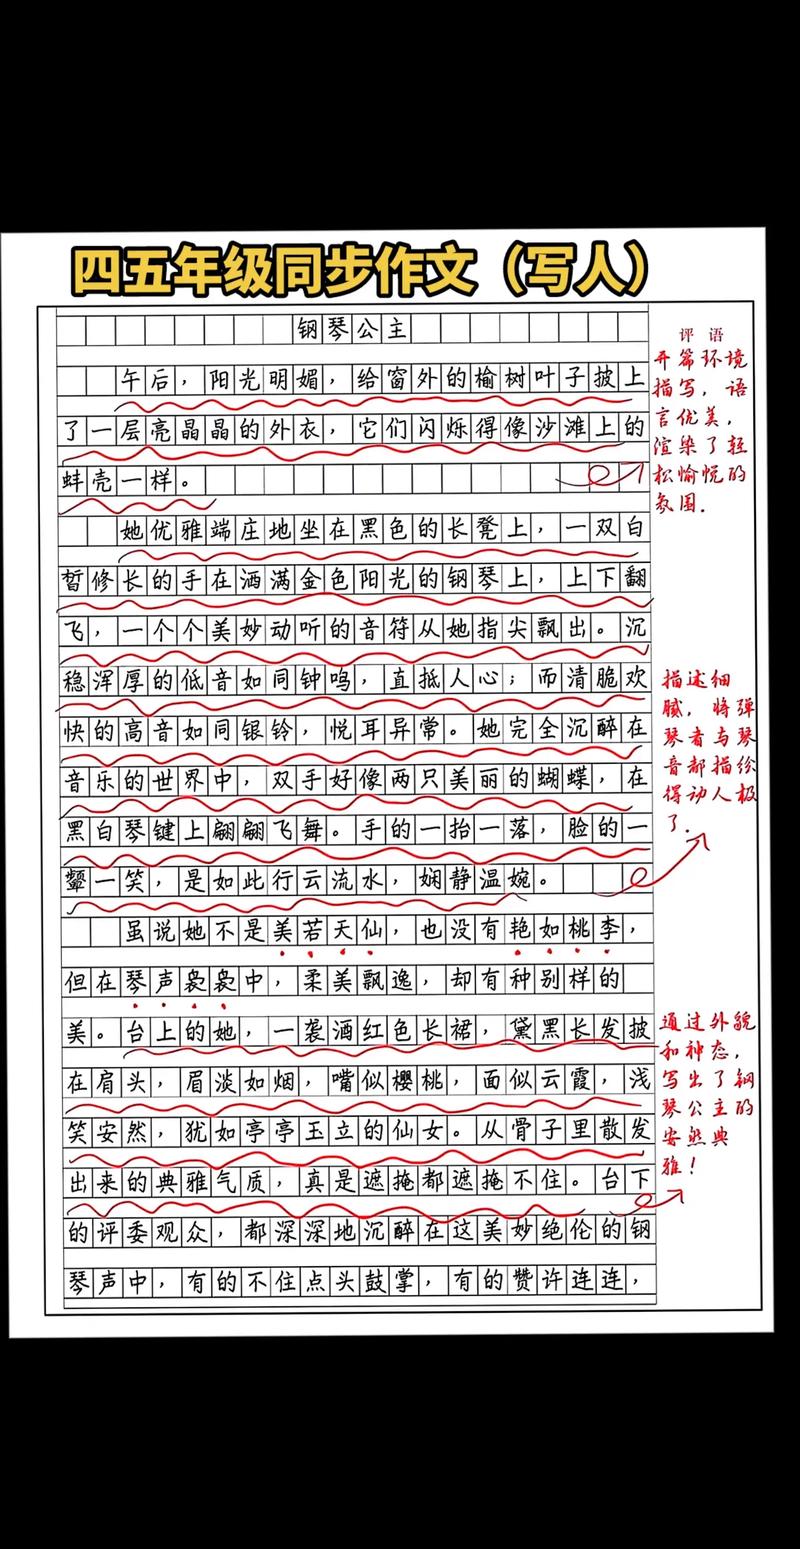 四五年级同步作文（写人）
钢琴公主
午后，阳光明媚，给窗外的榆树叶子披上
了一层亮晶晶的外衣，它们闪烁得像沙滩上的
蚌壳一样。
她优雅端庄地坐在黑色的长凳上，一双白
皙修长的手在洒满金色阳光的钢琴上，上下翻
飞，一个个美妙动听的音符从她指尖飘出。沉
稳浑厚的低音如同钟鸣，直抵人心；而清脆欢
快的高音如同银铃，悦耳异常。她完全沉醉在
音乐的世界中，双手好像两只美丽的蝴蝶，在
黑白琴键上翩翩飞舞。手的一抬一落，脸的一
颦一笑，是如此行云流水，娴静温婉。
虽说她不是美若天仙，也没有艳如桃李，
但在琴声袅袅中，柔美飘逸，却有种别样的
美。台上的她，一袭酒红色长裙，黛黑长发披
在肩头，眉淡如烟，嘴似樱桃，面似云霞，浅
笑安然，犹如亭亭玉立的仙女。从骨子里散发
出来的典雅气质，真是遮掩都遮掩不住。台下
的评委观众，都深深地沉醉在这美妙绝伦的钢
琴声中，有的不住点头鼓掌，有的赞许连连，
评 语
开篇环境
描写，语
言优美，
渲染了轻
松愉悦的
氛围.
描述细
腻，将弹
琴者与琴
音都描绘
得动人极
了.
通过外貌
和神态，
写出了钢
琴公主的
安然典
雅！